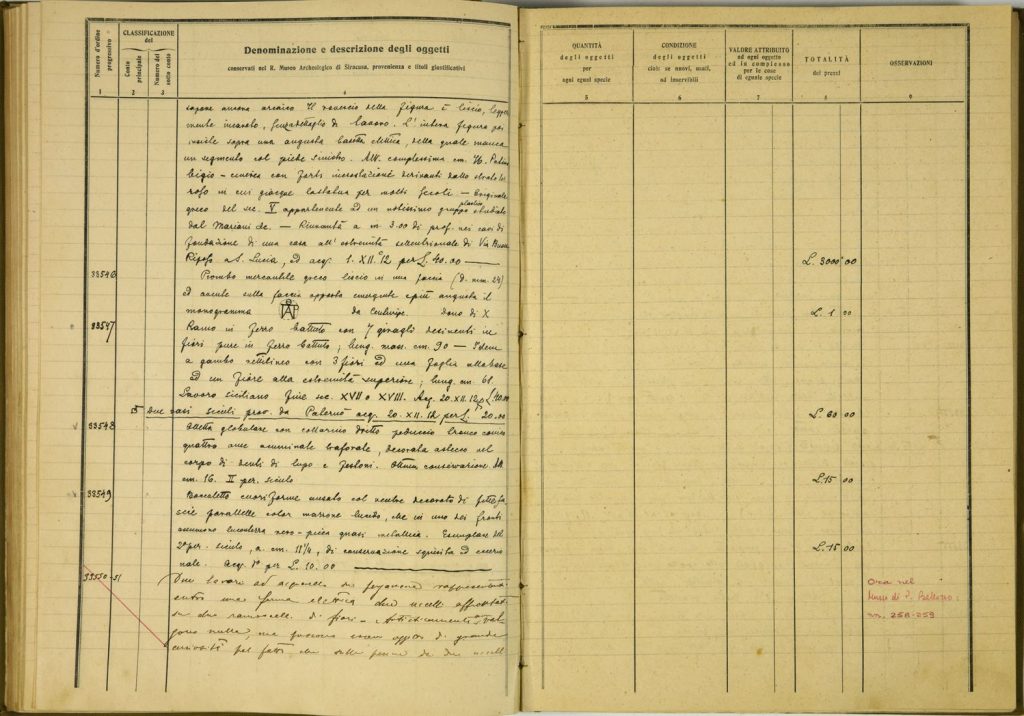 Numero d'ordine progressivo
CLASSIFICAZIONE
del
Conto principale
Numero del sotto conto
Denominazione e descrizione degli oggetti
conservati nel R. Museo Archeologico di Siracusa, provenienza e titoli giustificativi
1 2 3 4
sapore ancora arcaico Il rovescio della figura è liscio, legger
mente incavato, senza dettaglio di lavoro. L'intera figura poi
insiste sopra una angusta basetta ellittica, della quale manca
un segmento col piede sinistro. Alt. complessiva cm. Patina
bigio-cinerea con forti incrostazioni derivanti dallo strato
in cui giacque la statua per molti secoli — Originale
greco del sec. V appartenente ad un notissimo gruppo plastico studiato
dal Mariani etc. — Rinvenuta a m. 3.00 di prof. nei cavi di
fondazione di una casa all'estremità settentrionale di Via Buon
Riposo a S. Lucia, ed acq. 1. XII. 12 per L. 40.00
33546 Piombo mercantile greco liscio in una faccia (d. mm. 24)
ed avente sulla faccia opposta emergente e più angusta il
monogramma da Centuripe. Dono di X
33547 Ramo in ferro battuto con 7 giragli desinenti in
fiori pure in ferro battuto; lung. mass. cm. 90 — Idem
a gambo rettilineo con 3 fiori ed una foglia alla base
ed un fiore alla estremità superiore; lung. cm. 61.
Lavoro siciliano fine sec. XVII o XVIII. Acq. 20. XII. 12 p. L. 40.00
due vasi siculi prov. da Paternò acq. 20. XII. 12 per L. 20.00
33548 Olletta globulare con collarino dritto peduccio tronco conico
quattro anse traforate, decorata a stecco nel
corpo di denti di lupo e festoni. Ottima conservazione Alt.
cm. 16. II per. siculo
33549 Boccaletto cuoriforme ansato col ventre decorato di fitte fa
scie parallele color marrone lucido, che in uno dei fronti
assumono lucentezza nero-picea quasi metallica. Esemplare del
2° per. siculo, a. cm. 11¼, di conservazione squisita ed eccezio
nale. Acq. per L. 10.00
33550-51 Due lavori ad acquerello rappresenta
una forma ellittica due uccelli affrontati
su due ramoscelli di fiori — Artisticamente val
gono nulla, ma possono essere oggetto di grande
curiosità pel fatto che sulle penne de due uccelli
QUANTITÀ
degli oggetti
per
ogni eguale specie
CONDIZIONE
degli oggetti
cioè: se nuovi, usati,
od inservibili
VALORE ATTRIBUITO
ad ogni oggetto
ed in complesso
per le cose
di eguale specie
TOTALITÀ
dei prezzi
OSSERVAZIONI
5 6 7 8 9
L. 3000 00
L. 1 00
L. 60 00
L. 15 00
L. 15 00
Ora nel
Museo di P. Bellomo:
nn. 258-259